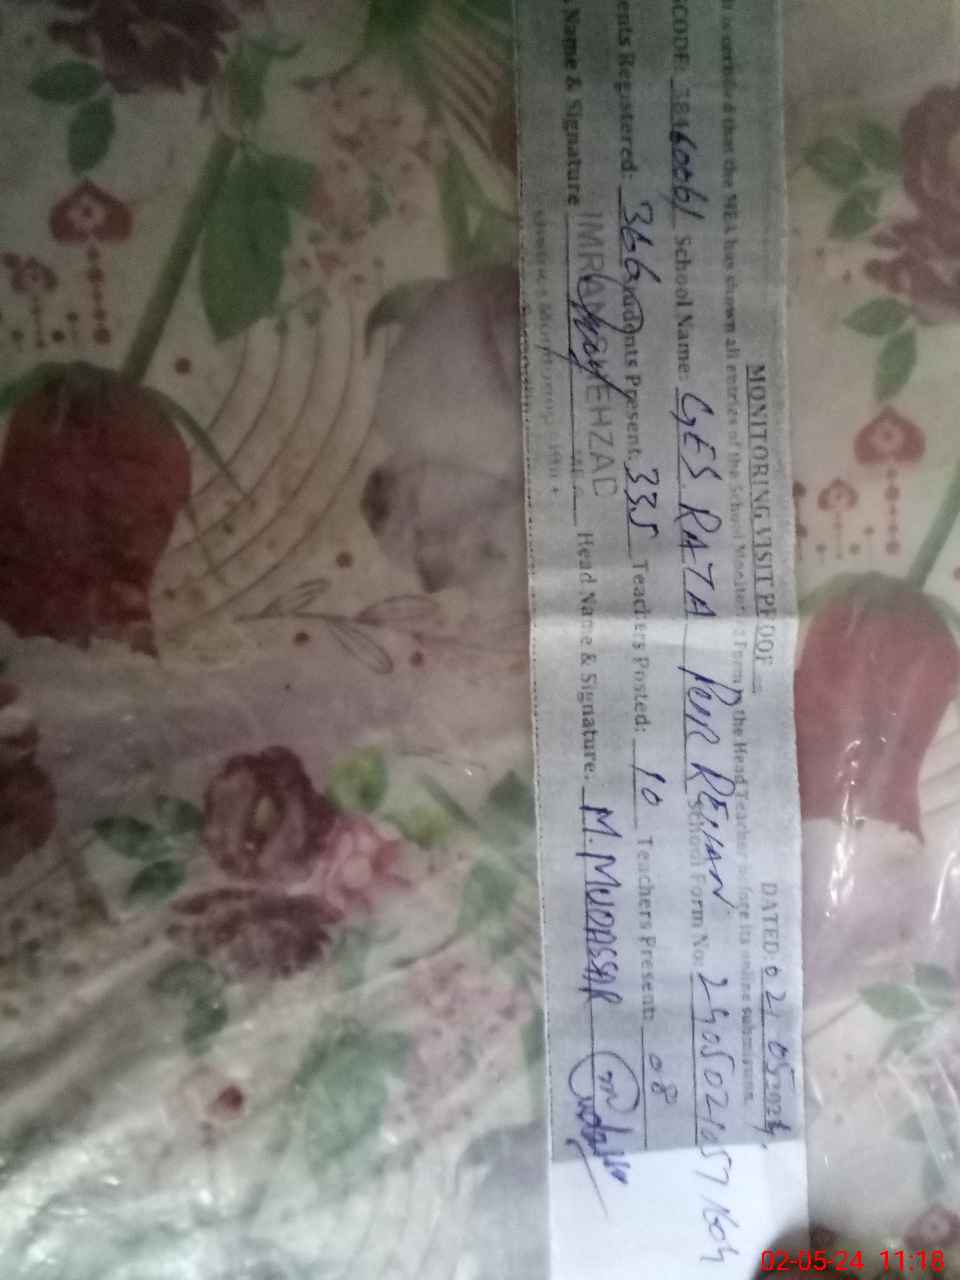 MONITORING VISIT PROOF
DATED: 02/05/2024,
that the MEA has shown all entries of the School Monitoring Form to the Head Teacher before its online submission.
School Name: GES RATA PUR REHAN School Form No: 24050210571604
Registered: 366 Students Present: 335 Teachers Posted: 10 Teachers Present: 08
Name & Signature IMRAN SHEHZAD Head Name & Signature: M. MUDASSAR
02-05-24 11:18